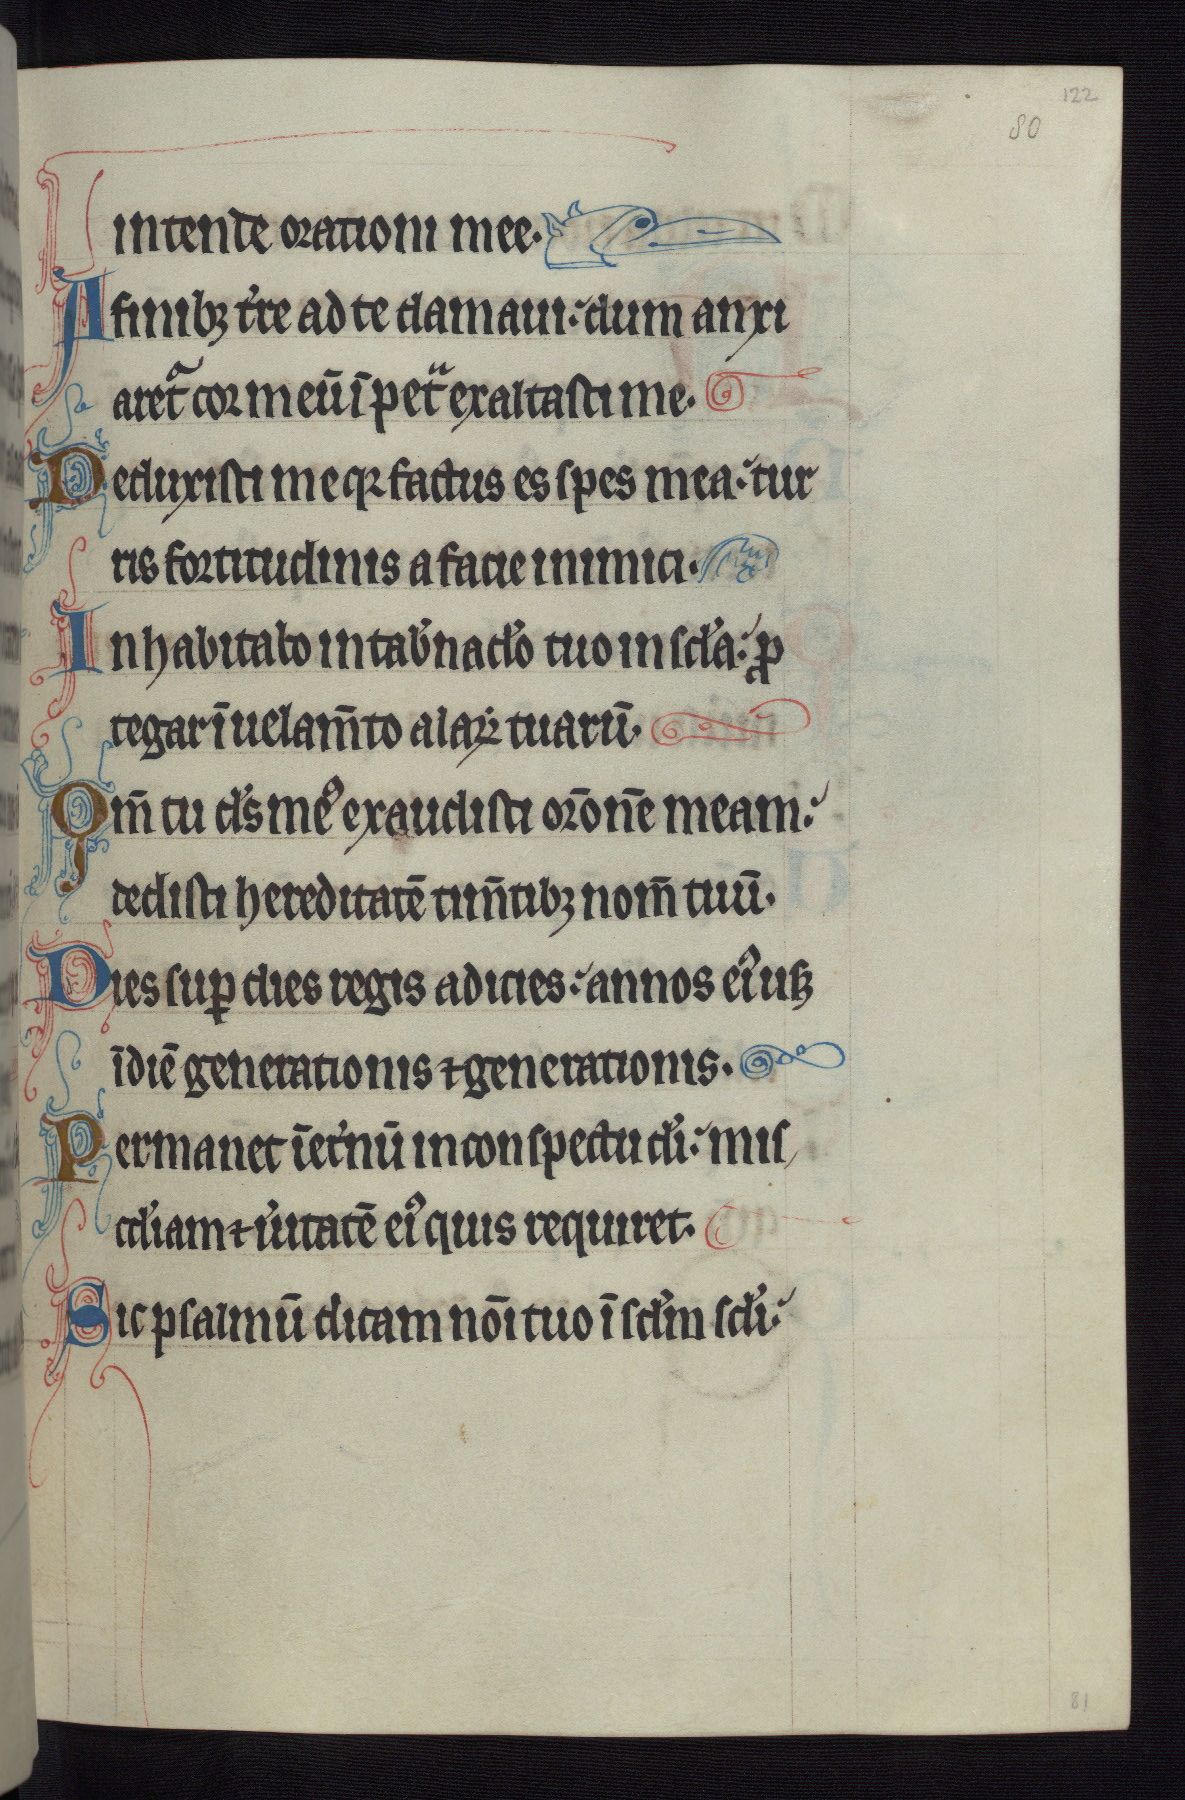 122
80
intende orationi mee.
A finibꝫ t̓re ad te clamaui: dum anxi
aretᷓ cor meū ī petͥͣ exaltasti me.
Deduxisti me qꝛ factus es spes mea: tur
ris fortitudinis a facie inimici.
Inhabitabo in tab̓nac̓lo tuo in sc̓la: ꝓ
tegar ī uelam̄to alaꝝ tuarū.
Qm̄ tu ds̓ meꝰ exaudisti or̄onē meam:
dedisti hereditatē tim̄tibꝫ nom̄ tuū.
Dies suꝑ dies regis adicies: annos eiꝰ usꝫ
ī diē generationis ⁊ generationis.
Permanet ī et̓nū in conspectu di̓: mis
c̓diam ⁊ u̓itatē eiꝰ quis requiret.
Sic psalmū dicam nōi tuo ī sc̓lm sc̓li:
81